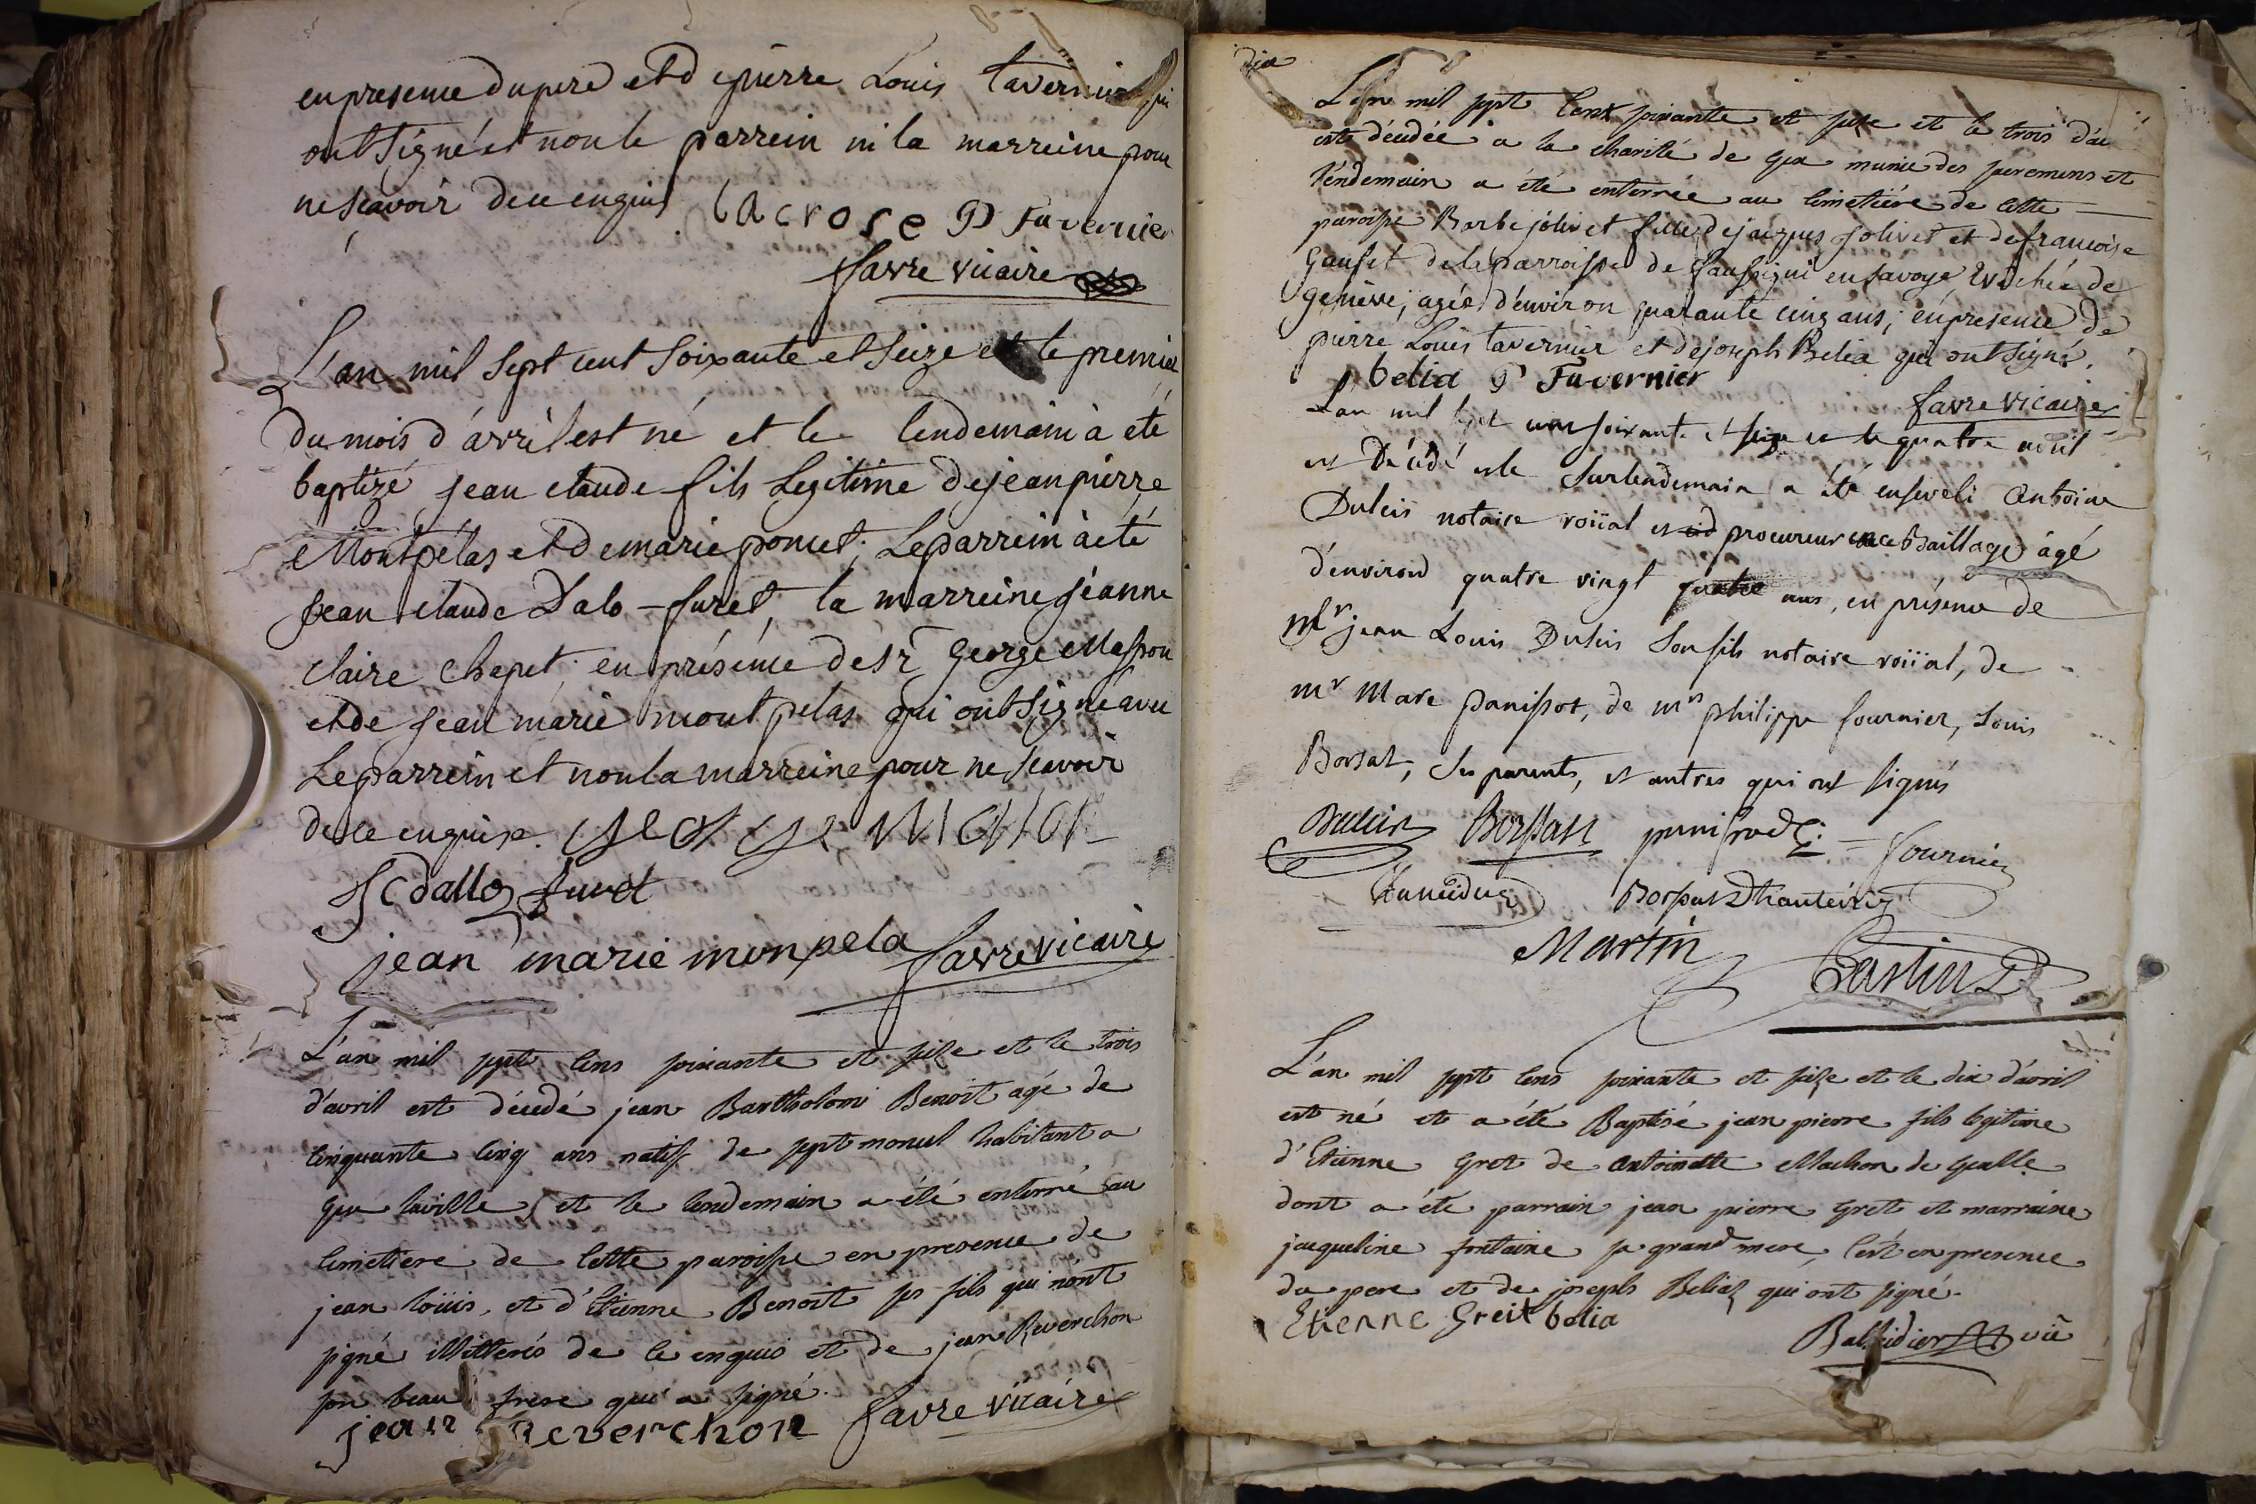 en presence du pere et de pierre Louis Tavernier qui
ont signé et non le parrein ni la marreine pour
ne sçavoir de ce enquis lacrose P Tavernier
favre vicaire
L'an mil sept cent soixante et seize et le premier
du mois d'avril est né et le lendemain à été
baptizé jean claude fils Legitime de jean pierre
Montpelas et de marie poncet; Le parrein à eté
jean claude Dalo-furet, la marreine jéanne
claire Chepet; en présénce de sr George Masson
et de jean marie montpelas qui ont signé avec
Le parrein et non la marreine pour ne sçavoir
de ce enquise.
JC dallo furet
jean marie monpela favre vicaire
L'an mil sept cens soixante et seize et le trois
d'avril est décedé jean Bartholomi Benoit agé de
cinquante cinq ans natif de septmoncel habitant a
gex laville et le lendemain a été enterré au
cimetiere de cette paroisse en presence de
jean loüis, et d'Etienne Benoit ses fils qui n'ont
signé illitterés de ce enquis et de jean Reverchon
son beau frere qui a signé.
jean Reverchon favre vicaire
dix
L'an mil sept cens soixante et seize et le trois d'av
est décedée a la charité de gex munie des sacremens et
lendemain a été enterrée au cimetiére de cette
paroisse Barbe jolivet fille de jacques jolivet et de francoise
Gaufet de la parroisse de en savoye, Evêchée de
genéve; agée d'environ quarante cinq ans; en presence de
pierre Louis tavernier et de joseph Belia qui ont signé.
J belia P Tavernier
favre vicaire
L'an mil sept cens soixante et seize et le quatre avril
est Décédé et le surlendemain a été enseveli Antoine
Dulcis notaire roïial et procureur en ce Baillage âgé
d'environ quatre vingt quatre ans, en présence de
Mr jean Louis Dulcis son fils notaire roïial, de
mr Marc panissot, de mr philippe fournier, Louis
Borsat, ses parents, et autres qui ont signés
Dulcis Borssat panissod fournier
Borssat Dhauterive
Martin
L'an mil sept cens soixante et seize et le dix d'avril
est né et a été Baptisé jean pierre fils legitime
d'Etienne gret de antoinette Machon de gex
dont a été parrain jean pierre gret et marraine
jacqueline fontaine sa grand mere, c'est en presence
du pere et de joseph Beliaz qui ont signé.
Etienne Greit belia
Balleidier vic